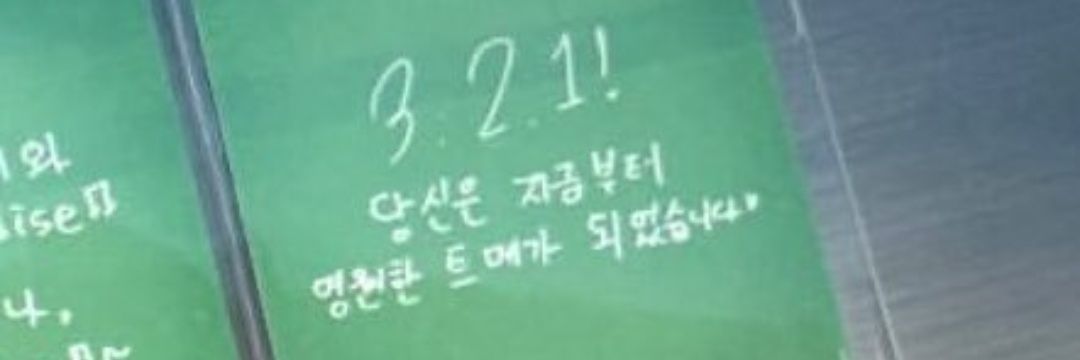 와
ise
나,
3. 2. 1!
당신은 지금부터
영원한 트메가 되었습니다♥